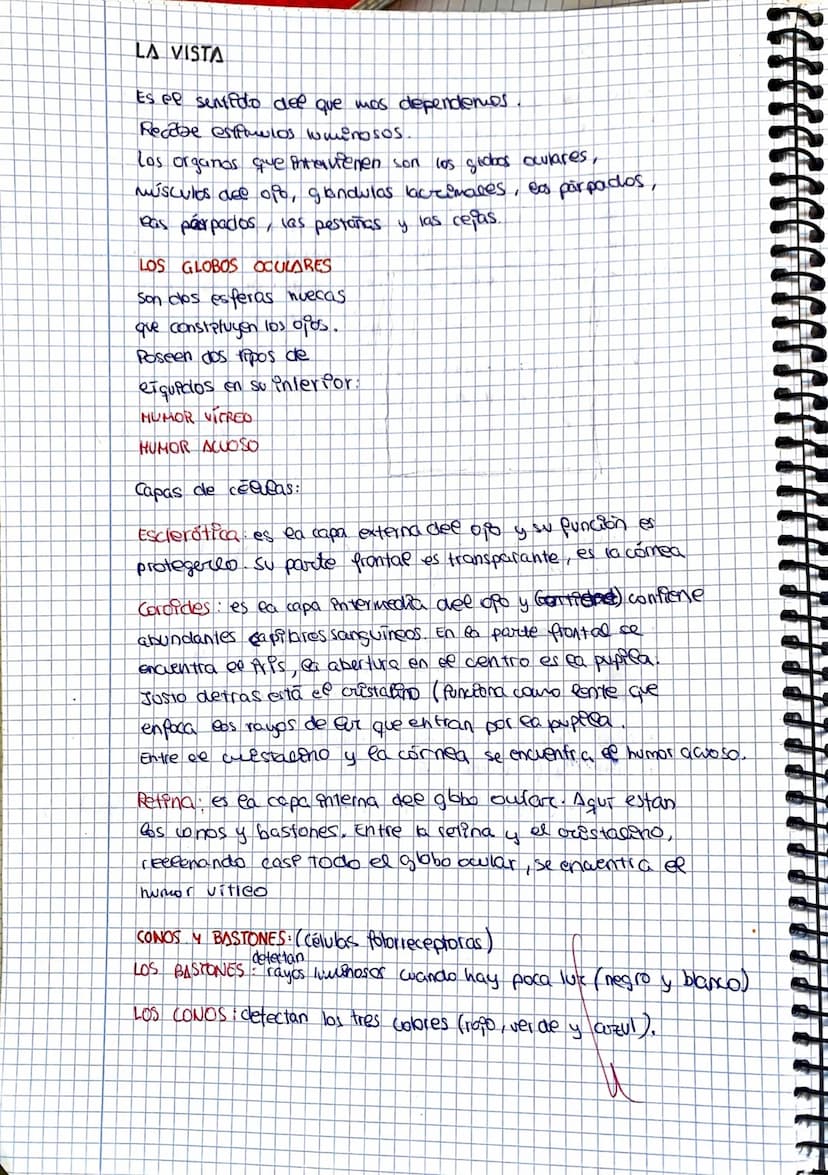 LA VISTA
Es el sentido del que mas dependemos.
Recibe estímulos luminosos.
Los organos que intervienen son los globos oculares,
músculos del ojo, glándulas lacrimales, los párpados,
las párpados, las pestañas y las cejas.
LOS GLOBOS OCULARES
Son dos esferas huecas
que constituyen los ojos.
Poseen dos tipos de
líquidos en su interior:
HUMOR VÍTREO
HUMOR ACUOSO
Capas de células:
Esclerótica: es la capa externa del ojo y su función es
protegerlo. Su parte frontal es transparante, es la córnea
Coroides: es la capa intermedia del ojo y contiene
abundantes capilares sanguíneos. En la parte frontal se
encuentra el iris, la abertura en el centro es la pupila.
Justo detras está el cristalino (funciona como lente que
enfoca los rayos de luz que entran por la pupila.
Entre el cristalino y la córnea se encuentra el humor acuoso.
Retina: es la capa interna del globo oular. Aquí estan
los conos y bastones. Entre la retina y el cristalino,
rellenando casi todo el globo ocular, se encuentra el
humor vítreo
CONOS Y BASTONES: (células fotorreceptoras)
LOS BASTONES: detectan rayos luminosos cuando hay poca luz (negro y blanco)
LOS CONOS: detectan los tres colores (rojo, verde y azul).